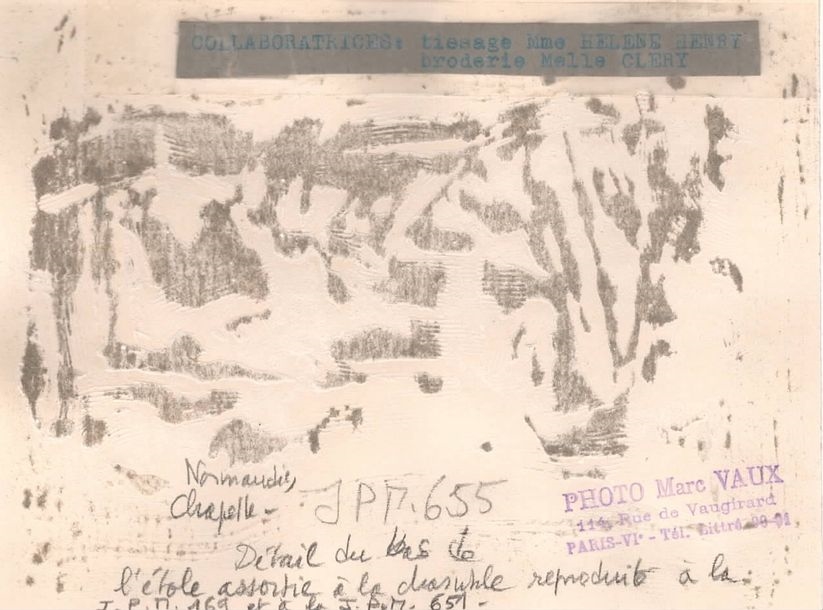 COLLABORATRICES: tissage Mme HELENE HENRY
broderie Melle CLERY
Normandie,
Chapelle -
J P M. 655
PHOTO Marc VAUX
114, Rue de Vaugirard
PARIS-VIe - Tél. Littré
Détail du bas de
l'étole assortie à la chasuble reproduite à la
J. P. M. 469 et à la J. P. M. 651 -